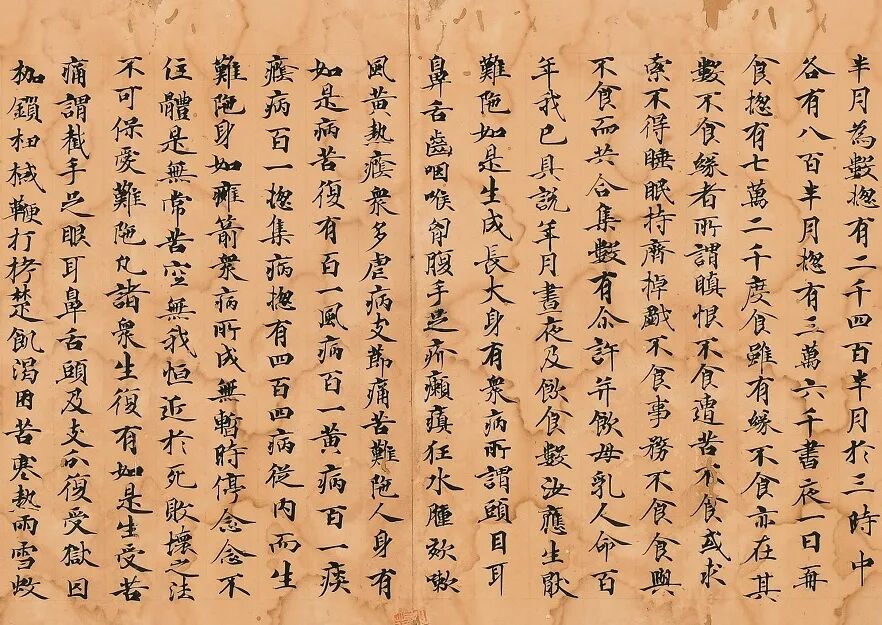 半月為數揔有二千四百半月於三時中
各有八百半月揔有三萬六千晝夜一日再
食揔有七萬二千度食雖有緣不食亦在其
數不食緣者所謂瞋恨不食遭苦不食或求
索不得睡眠持齋掉戲不食事務不食食與
不食而共合集數有尒許并飲母乳人命百
年我已具說年月晝夜及飲食數汝應生猒
難陁如是生成長大身有衆病所謂頭目耳
鼻舌齒咽喉匈腹手足疥癩癲狂水腫欬嗽
風黃熱癊衆多瘧病支節痛苦難陁人身有
如是病苦復有百一風病百一黃病百一痰
癊病百一揔集病揔有四百四病從内而生
難陁身如癰箭衆病所成無暫時停念念不
住體是無常苦空無我恒近於死敗壞之法
不可保愛難陁凡諸衆生復有如是生受苦
痛謂截手足眼耳鼻舌頭及支分復受獄囚
枷鎖杻械鞭打拷楚飢渴困苦寒熱雨雪蚊